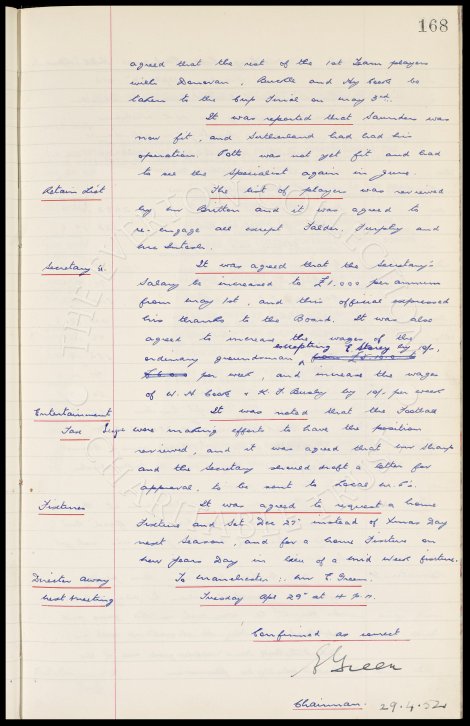 168
agreed that the rest of the 1st Team players
with Donovan, Buckle and Hy Cook be
taken to the Cup Final on May 3rd.
It was reported that Saunders was
now fit, and Sutherland had had his
operation. Potts was not yet fit and had
to see the Specialist again in June.
Retain List The list of players was reviewed
by Mr Britton and it was agreed to
re-engage all except Falder, Murphy and
McIntosh.
Secretary It was agreed that the Secretary's
Salary be increased to £1.000 per annum
from May 1st, and this official expressed
his thanks to the Board. It was also
agreed to increase the wages of the
excepting E Storey by 10/-
ordinary groundsman
per week, and increase the wages
of W. H Cook & K. F Busby by 10/- per week
Entertainment It was noted that the Football
Tax League were making efforts to have the position
reviewed, and it was agreed that Mr Sharp
and the Secretary should draft a letter for
approval, to be sent to Local M.P's.
Fixtures It was agreed to request a home
Fixture and Sat Dec 27th instead of Xmas Day
next Season, and for a home Fixture on
New Years Day in lieu of a mid week fixture.
Director Away To Manchester :- Mr E. Green.
Next Meeting Tuesday Apl 29th at 4 p.m.
Confirmed as correct
E Green
Chairman. 29.4.52